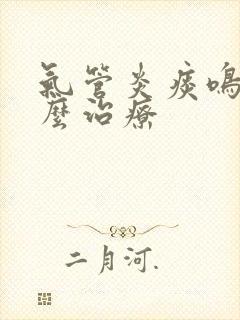 氣管炎痰鳴
麼治療
二月河.